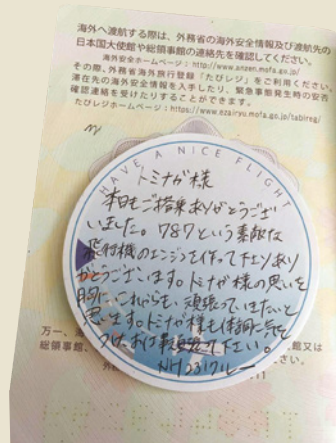 海外へ渡航する際は、外務省の海外安全情報及び渡航先の
日本国大使館や総領事館の連絡先を確認してください。
海外安全ホームページ：http://www.anzen.mofa.go.jp/
その際、外務省海外旅行登録「たびレジ」をご利用ください。
滞在先の海外安全情報を入手したり、緊急事態発生時の安否
確認連絡を受けたりすることができます。
たびレジホームページ：https://www.ezairyu.mofa.go.jp/tabireg/
HAVE A NICE FLIGHT
トミナガ様
本日もご搭乗ありがとうござ
いました。787という素敵な
飛行機のエンジンを作って下さりあり
がとうございます。トミナガ様の思いを
胸に、これからも頑張っていきたいと
思います。トミナガ様も体調に気を
つけ、お仕事頑張って下さい。
NH231クルー
万一、
総領事館、
館又は
さい。